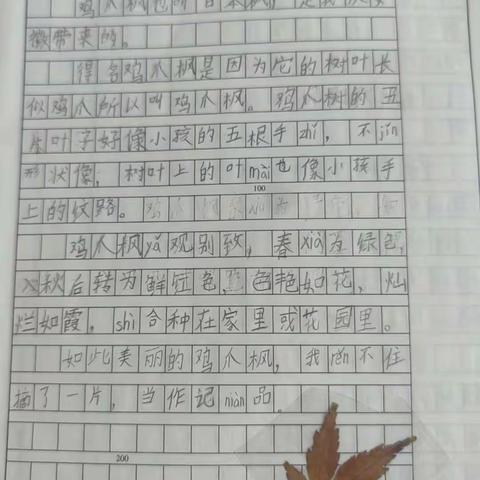 鸡爪枫
徽带来的。
得名鸡爪枫是因为它的树叶长
似鸡爪所以叫鸡爪枫。鸡爪树的五
片叶子好像小孩的五根手zhǐ，不jǐn
形状像，树叶上的叶mài也像小孩手
100
上的纹路。
鸡爪枫yǎ观别致，春xià为绿色，
入秋后转为鲜红色，色艳如花，灿
烂如霞，shì合种在家里或花园里。
如此美丽的鸡爪枫，我rěn不住
摘了一片，当作记niàn品。
200